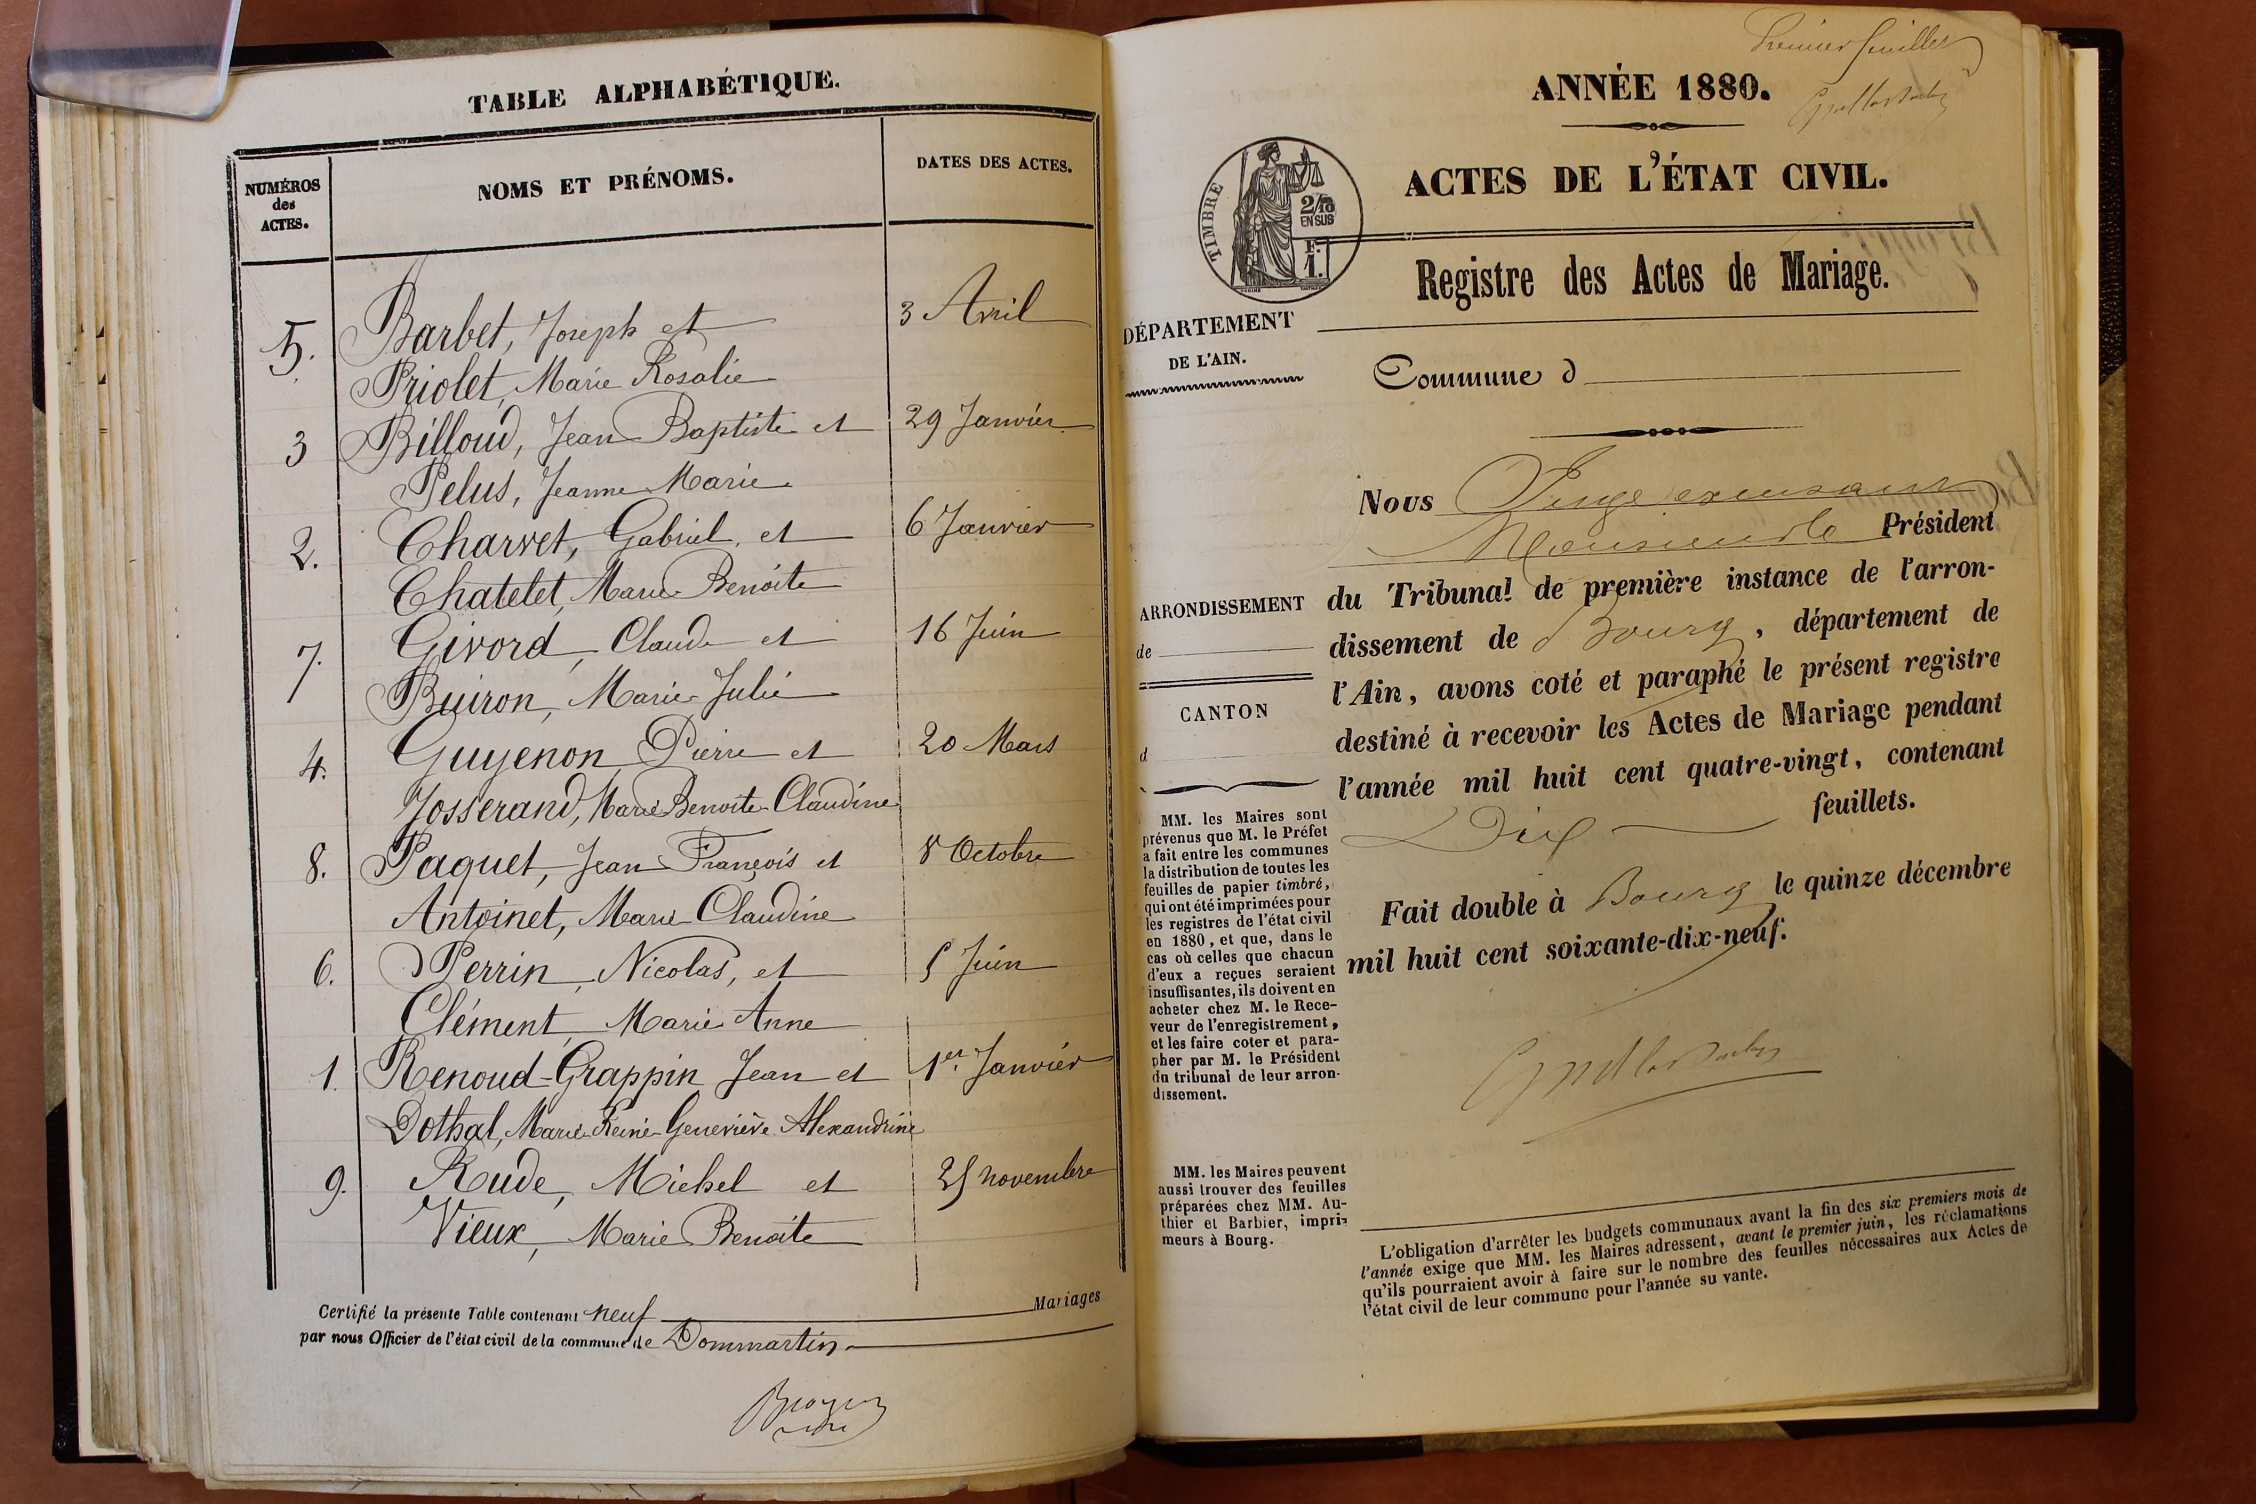 TABLE ALPHABÉTIQUE.
NUMÉROS des ACTES.
NOMS ET PRÉNOMS.
DATES DES ACTES.
5. Barbet, Joseph et 3 Avril
Priolet, Marie Rosalie
3 Billoud, Jean Baptiste et 29 Janvier
Pelus, Jeanne Marie
2. Charvet, Gabriel, et 6 Janvier
Chatelet, Marie Benoite
7. Givord, Claude et 16 Juin
Buiron, Marie Julie
4. Guyenon Pierre et 20 Mars
Josserand, Marie Benoite Claudine
8. Paquet, Jean François et 8 Octobre
Antoinet, Marie Claudine
6. Perrin, Nicolas, et 5 Juin
Clément, Marie Anne
1. Renoud-Grappin Jean et 1er Janvier
Dothal, Marie Reine Geneviève Alexandrine
9. Rude, Michel et 25 novembre
Vieux, Marie Benoite
Certifié la présente Table contenant neuf Mariages
par nous Officier de l'état civil de la commune de Dommartin
Premier feuillet
ANNÉE 1880.
ACTES DE L'ÉTAT CIVIL.
TIMBRE
2/10
EN SUS
F.
1.
Registre des Actes de Mariage.
DÉPARTEMENT
DE L'AIN.
Commune d
Nous Juge
Monsieur le Président
du Tribunal de première instance de l'arron-
dissement de Bourg, département de
l'Ain, avons coté et paraphé le présent registre
destiné à recevoir les Actes de Mariage pendant
l'année mil huit cent quatre-vingt, contenant
Dix feuillets.
Fait double à Bourg le quinze décembre
mil huit cent soixante-dix-neuf.
ARRONDISSEMENT
de
CANTON
d
MM. les Maires sont
prévenus que M. le Préfet
a fait entre les communes
la distribution de toutes les
feuilles de papier timbré,
qui ont été imprimées pour
les registres de l'état civil
en 1880, et que, dans le
cas où celles que chacun
d'eux a reçues seraient
insuffisantes, ils doivent en
acheter chez M. le Rece-
veur de l'enregistrement,
et les faire coter et para-
pher par M. le Président
du tribunal de leur arron-
dissement.
MM. les Maires peuvent
aussi trouver des feuilles
préparées chez MM. Au-
thier et Barbier, impri-
meurs à Bourg.
L'obligation d'arrêter les budgets communaux avant la fin des six premiers mois de
l'année exige que MM. les Maires adressent, avant le premier juin, les réclamations
qu'ils pourraient avoir à faire sur le nombre des feuilles nécessaires aux Actes de
l'état civil de leur commune pour l'année su vante.